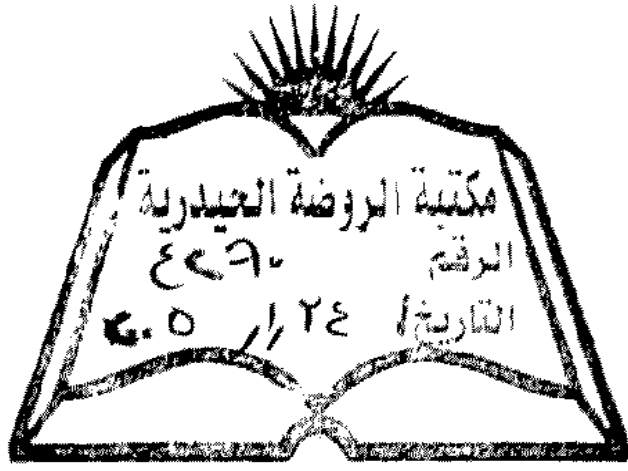 مكتبة الروضة الحيدرية
الرقم ٤٢٦٩٠
التاريخ / ٢٤